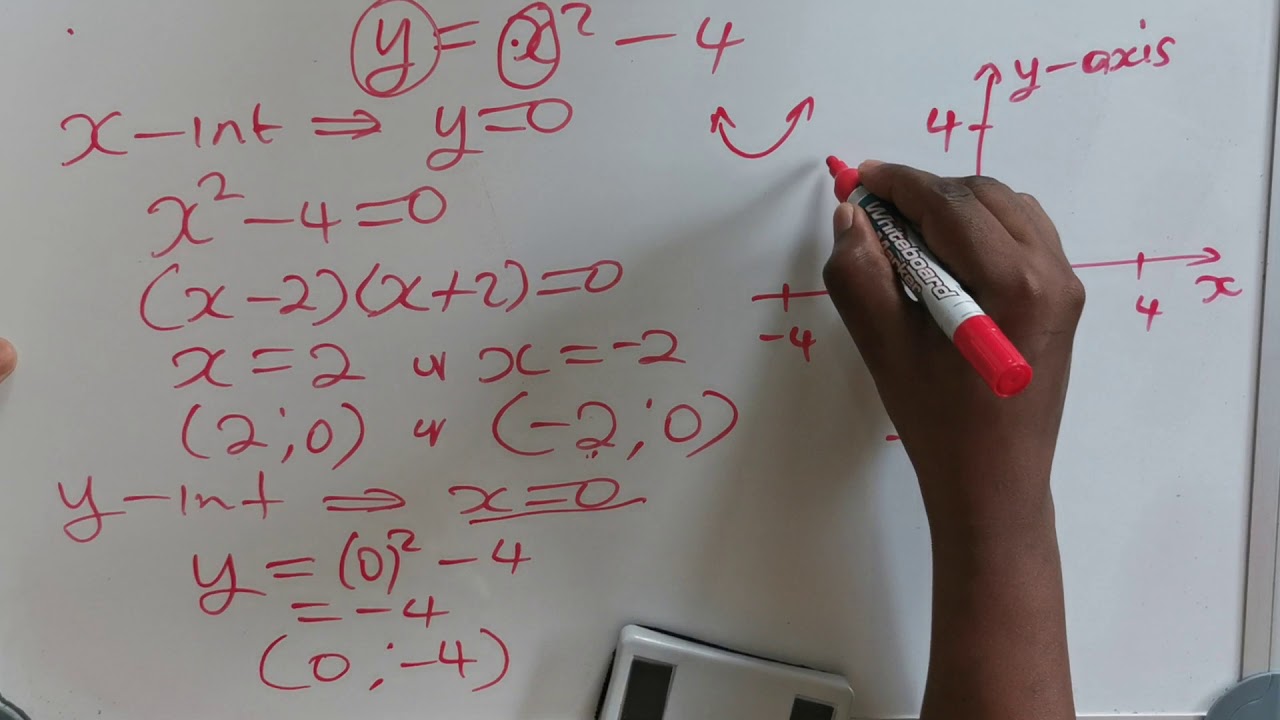 y = x² - 4
x-int ⇒ y=0
x² - 4 = 0
(x-2)(x+2)=0
x = 2 or x = -2
(2;0) or (-2;0)
y-int ⇒ x=0
y = (0)² - 4
= -4
(0;-4)
y-axis
4
-4
4
x
Whiteboard
Marker